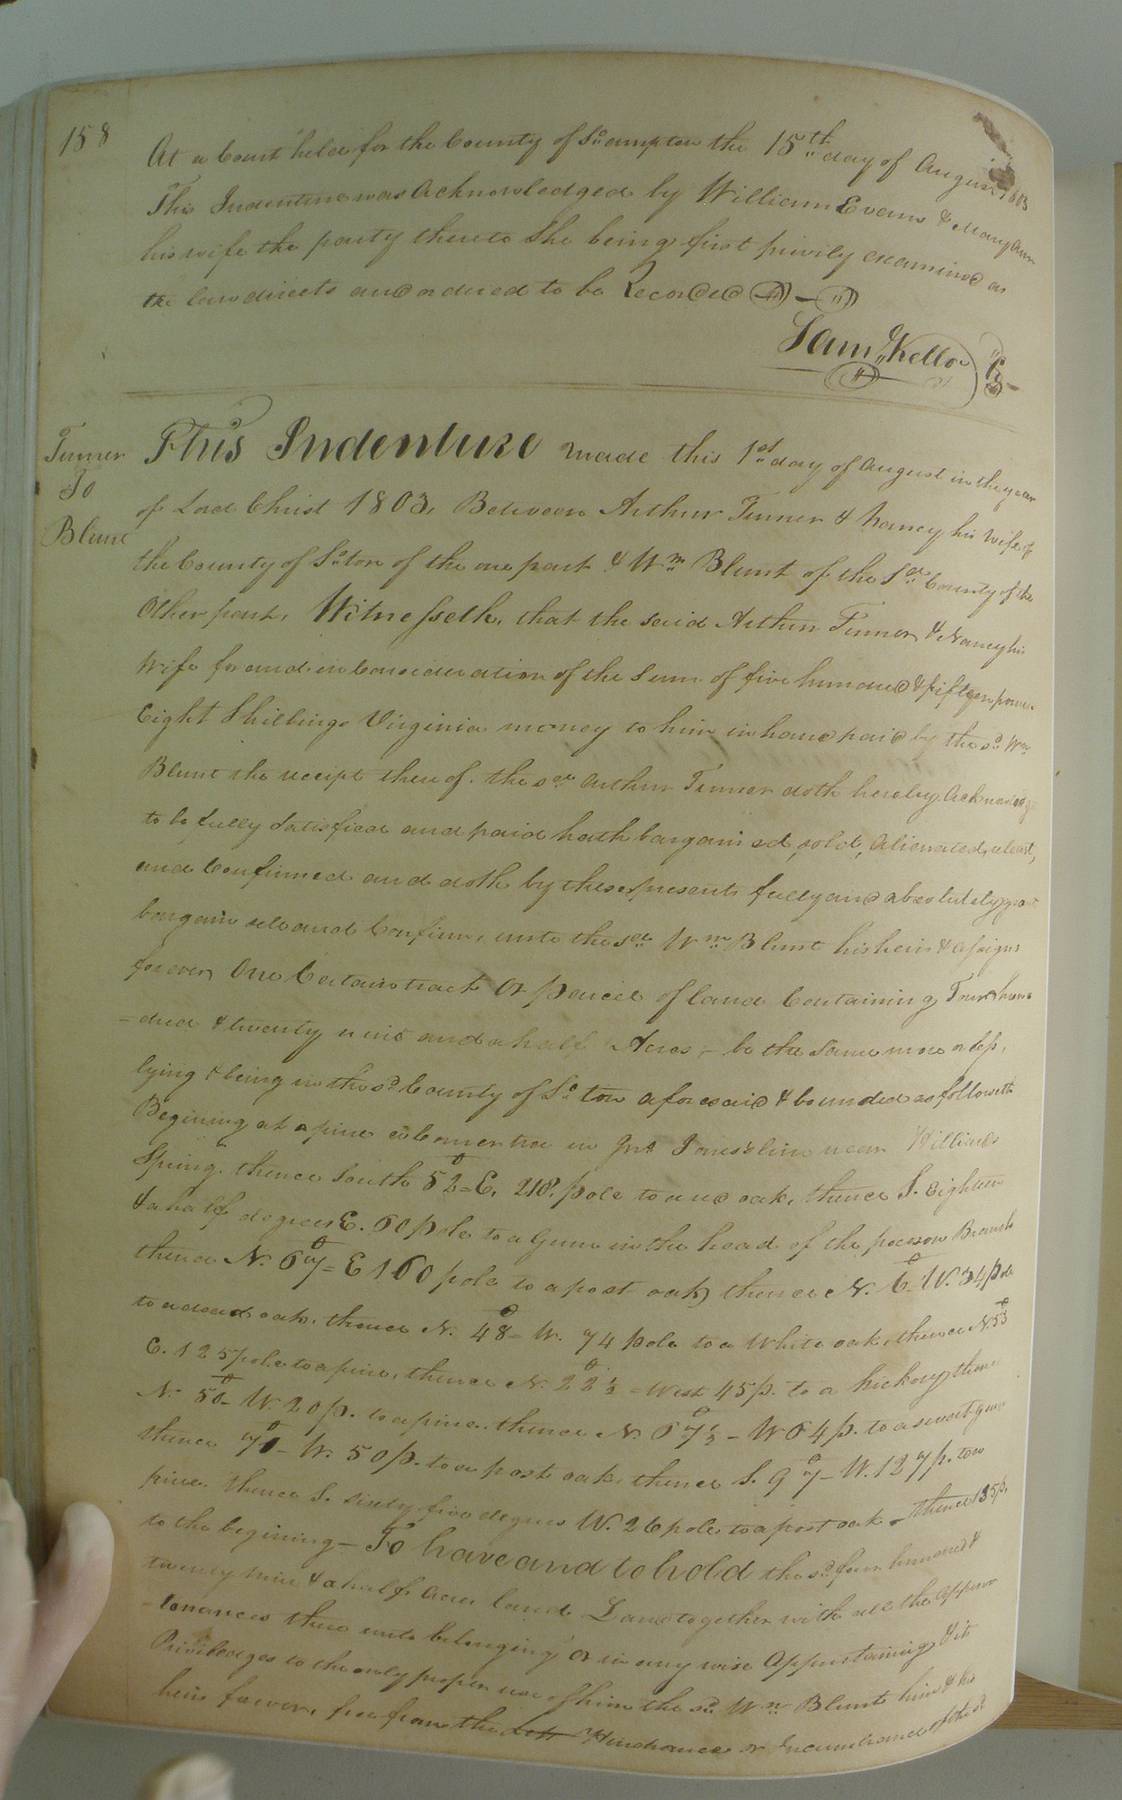 158
At a Court held for the County of So.ampton the 15th day of August 1803
This Indenture was Acknowledged by William Evans & Mary Ann
his wife the party thereto She being first privily examined as
the law directs and ordered to be Recorded
Saml. Kello C
Turner
To
Blunt
This Indenture made this 1st day of August in the year
of Lord Christ 1803, Between Arthur Turner & Nancy his Wife of
the County of So.ton of the one part & Wm Blunt of the Sd. County of the
Other part, Witnesseth, that the said Arthur Turner & Nancy his
Wife for and in Consideration of the Sum of five hundred & fifteen pounds
Eight Shillings Virginia money to him in hand paid by the sd. Wm
Blunt the receipt thereof. the sd. Arthur Turner doth hereby Acknowledge
to be fully Satisfied and paid hath bargained sold, Alienated, releast,
and Confirmed and doth by these presents fully and absolutely grant
bargain sell and Confirm, unto the sd. Wm Blunt his heirs & assigns
forever, One Certain tract Or parcel of land Containing Four hun
-dred & twenty nine and a half Acres, - be the Same more or less,
lying & being in the sd. County of So.ton aforesaid & bounded as followeth
Begining at a pine a Corner tree in Jno. Jones's line near Williams
Spring. thence South 52 = E, 218. pole to a red oak, thence S. Eighteen
& a half degrees E. 60 pole to a Gum in the head of the pocoson Branch
thence N. 67 = E 160 pole to a post oak, thence N. 6 - W. 34 pole
to a dead oak. thence N. 48 - W. 74 pole to a White oak, thence N. 53
E. 125 pole to a pine, thence N. 22½ = West 45 p. to a hickory, thence
N. 50 - W. 20 p. to a pine. thence N. 67½ - W 64 p. to a sweet gum
thence 70 - W. 50 p. to a post oak, thence S. 97 - W. 127 p. to a
pine. thence S. sixty five degrees W. 26 pole to a post oak - thence 135 p.
to the begining - To have and to hold the sd. four hundred &
twenty nine & a half Acres land Land together with all the Appur
-tenances there unto belonging Or in any wise Appertaining & its
Priviledges to the only proper use of him the sd. Wm Blunt him & his
heirs forever, free from the Lett Hindrance or Incumbrance of the sd.